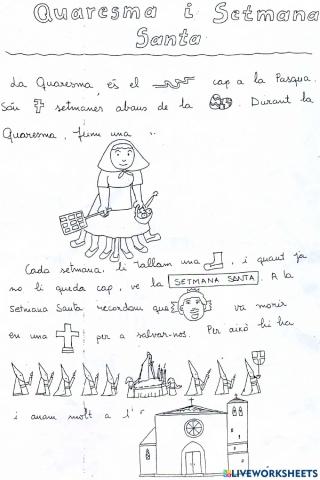 Quaresma i Setmana
Santa
La Quaresma, és el cap a la Pasqua.
Són setmanes abans de la . Durant la
Quaresma, feim una ..
Cada setmana, li tallam una , i quant ja
no li queda cap, ve la SETMANA SANTA. A la
Setmana Santa recordam que va morir
en una per a salvar-nos. Per això hi ha
i anam molt a l'
LIVEWORKSHEETS